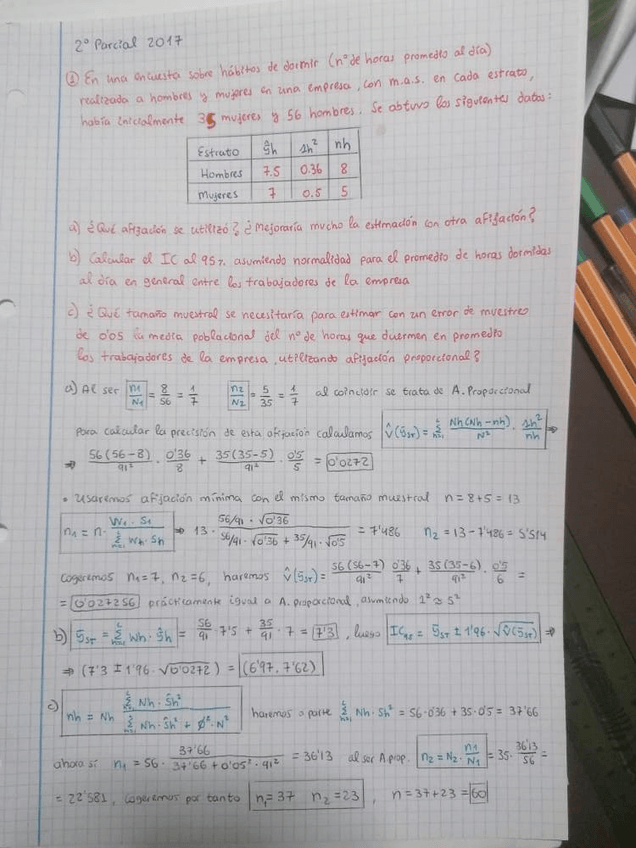 2º Parcial 2017
① En una encuesta sobre hábitos de dormir (nº de horas promedio al día)
realizada a hombres y mujeres en una empresa, con m.a.s. en cada estrato,
había inicialmente 35 mujeres y 56 hombres. Se obtuvo los siguientes datos:
Estrato ŷh sh² nh
Hombres 7.5 0.36 8
Mujeres 7 0.5 5
a) ¿Qué afijación se utilizó? ¿Mejoraría mucho la estimación con otra afijación?
b) Calcular el IC al 95%. asumiendo normalidad para el promedio de horas dormidas
al día en general entre los trabajadores de la empresa
c) ¿Qué tamaño muestral se necesitaría para estimar con un error de muestreo
de 0'05 la media poblacional del nº de horas que duermen en promedio
los trabajadores de la empresa, utilizando afijación proporcional?
a) Al ser n1/N1 = 8/56 = 1/7 n2/N2 = 5/35 = 1/7 al coincidir se trata de A. Proporcional
Para calcular la precisión de esta afijación calculamos V̂(ȳST) = Σ Nh(Nh-nh)/N² · sh²/nh ⇒
⇒ 56(56-8)/91² · 0'36/8 + 35(35-5)/91² · 0'5/5 = 0'0272
• Usaremos afijación mínima con el mismo tamaño muestral n = 8+5 = 13
n1 = n · W1·S1/Σ Wh·Sh ⇒ 13 · 56/91·√0'36 / 56/91·√0'36 + 35/91·√0'5 = 7'486 n2 = 13-7'486 = 5'514
Cogeremos n1=7, n2=6, haremos V̂(ȳST) = 56(56-7)/91² 0'36/7 + 35(35-6)/91² · 0'5/6 =
= 0'027256 prácticamente igual a A. proporcional, asumiendo 1² ≈ s²
b) ȳST = Σ Wh·ŷh = 56/91 · 7'5 + 35/91 · 7 = 7'3, luego IC95 = ȳST ± 1'96·√V̂(ȳST) ⇒
⇒ (7'3 ± 1'96·√0'0272) = (6'97, 7'62)
c) nh = Nh Σ Nh·Ŝh² / Σ Nh·Ŝh² + ε²·N² haremos a parte Σ Nh·Sh² = 56·0'36 + 35·0'5 = 37'66
ahora sí n1 = 56 · 37'66 / 37'66 + 0'05²·91² = 36'13 al ser A.prop. n2 = N2 · n1/N1 = 35· 36'13/56 =
= 22'581, cogeremos por tanto n1=37 n2=23, n=37+23=60